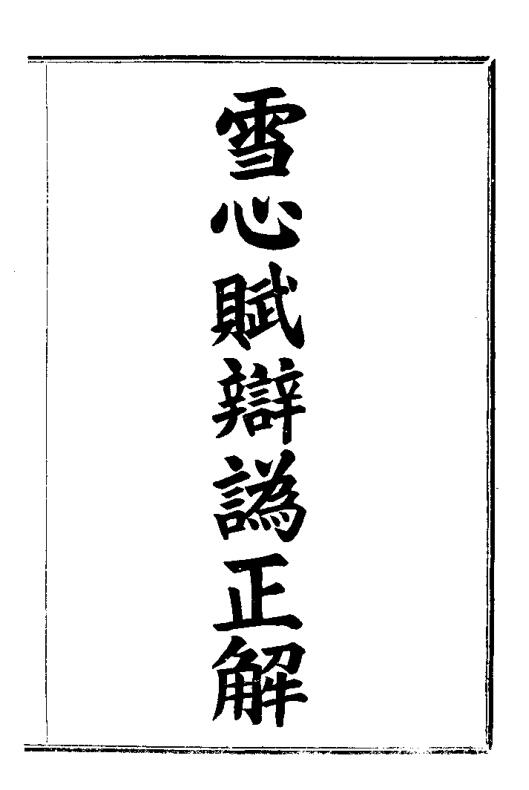 雪心賦辯譌正解